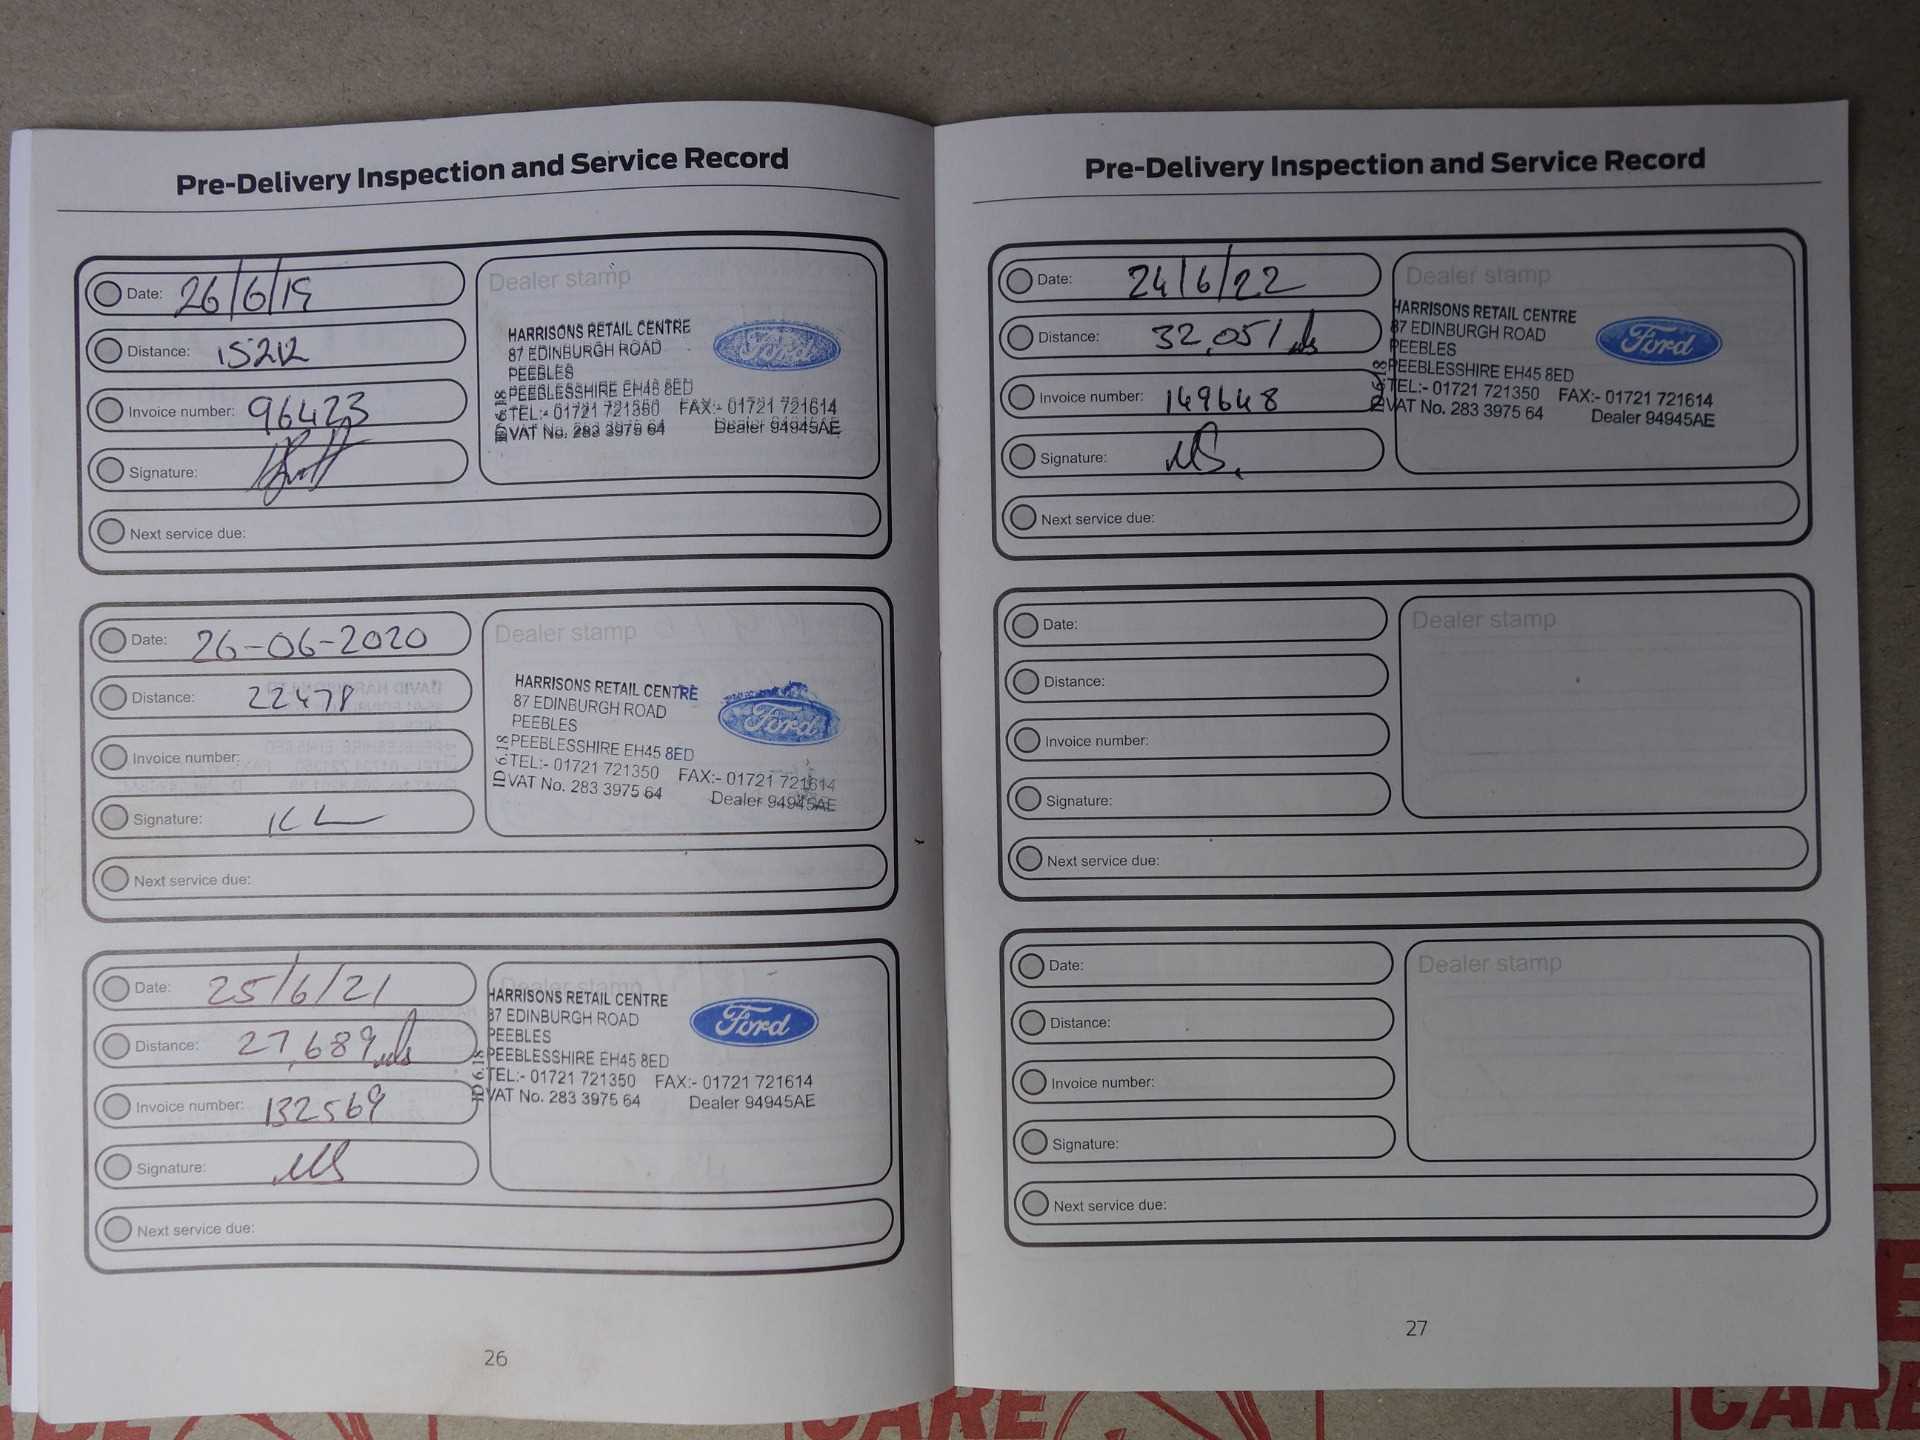 Pre-Delivery Inspection and Service Record
Date: 26/6/19
Distance: 15212
Invoice number: 96423
Signature:
Next service due:
Dealer stamp
HARRISONS RETAIL CENTRE
87 EDINBURGH ROAD
PEEBLES
PEEBLESSHIRE EH45 8ED
TEL:- 01721 721350 FAX:- 01721 721614
VAT No. 283 3975 64 Dealer 94945AE
Ford
Date: 26-06-2020
Distance: 22478
Invoice number:
Signature:
Next service due:
Dealer stamp
HARRISONS RETAIL CENTRE
87 EDINBURGH ROAD
PEEBLES
PEEBLESSHIRE EH45 8ED
TEL:- 01721 721350 FAX:- 01721 721614
VAT No. 283 3975 64 Dealer 94945AE
ID 6.18
Ford
Date: 25/6/21
Distance: 27,689 mls
Invoice number: 132569
Signature:
Next service due:
Dealer stamp
HARRISONS RETAIL CENTRE
87 EDINBURGH ROAD
PEEBLES
PEEBLESSHIRE EH45 8ED
TEL:- 01721 721350 FAX:- 01721 721614
VAT No. 283 3975 64 Dealer 94945AE
ID 6.18
Ford
26
Pre-Delivery Inspection and Service Record
Date: 24/6/22
Distance: 32,051 mls
Invoice number: 149648
Signature:
Next service due:
Dealer stamp
HARRISONS RETAIL CENTRE
87 EDINBURGH ROAD
PEEBLES
PEEBLESSHIRE EH45 8ED
TEL:- 01721 721350 FAX:- 01721 721614
VAT No. 283 3975 64 Dealer 94945AE
Ford
Date:
Distance:
Invoice number:
Signature:
Next service due:
Dealer stamp
Date:
Distance:
Invoice number:
Signature:
Next service due:
Dealer stamp
27
CARE
CARE